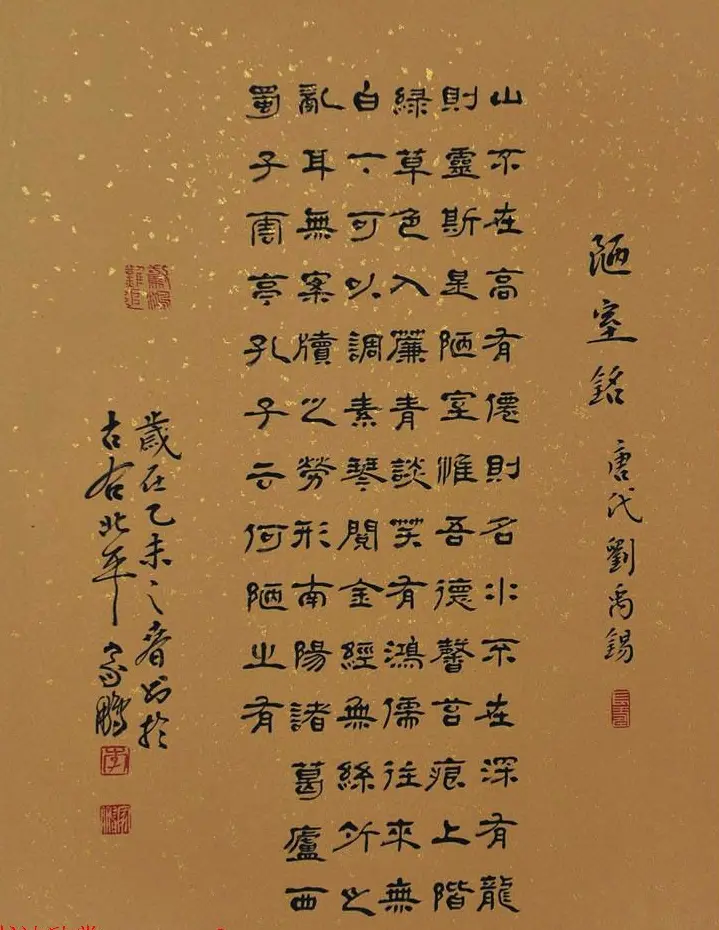 陋室銘 唐代劉禹錫
山不在高有僊則名水不在深有龍
則靈斯是陋室惟吾德馨苔痕上階
緑草色入簾青談笑有鴻儒往來無
白丁可以調素琴閱金經無絲竹之
亂耳無案牘之勞形南陽諸葛廬西
蜀子雲亭孔子云何陋之有
歲在乙未之春書於
古右北平 家鵬